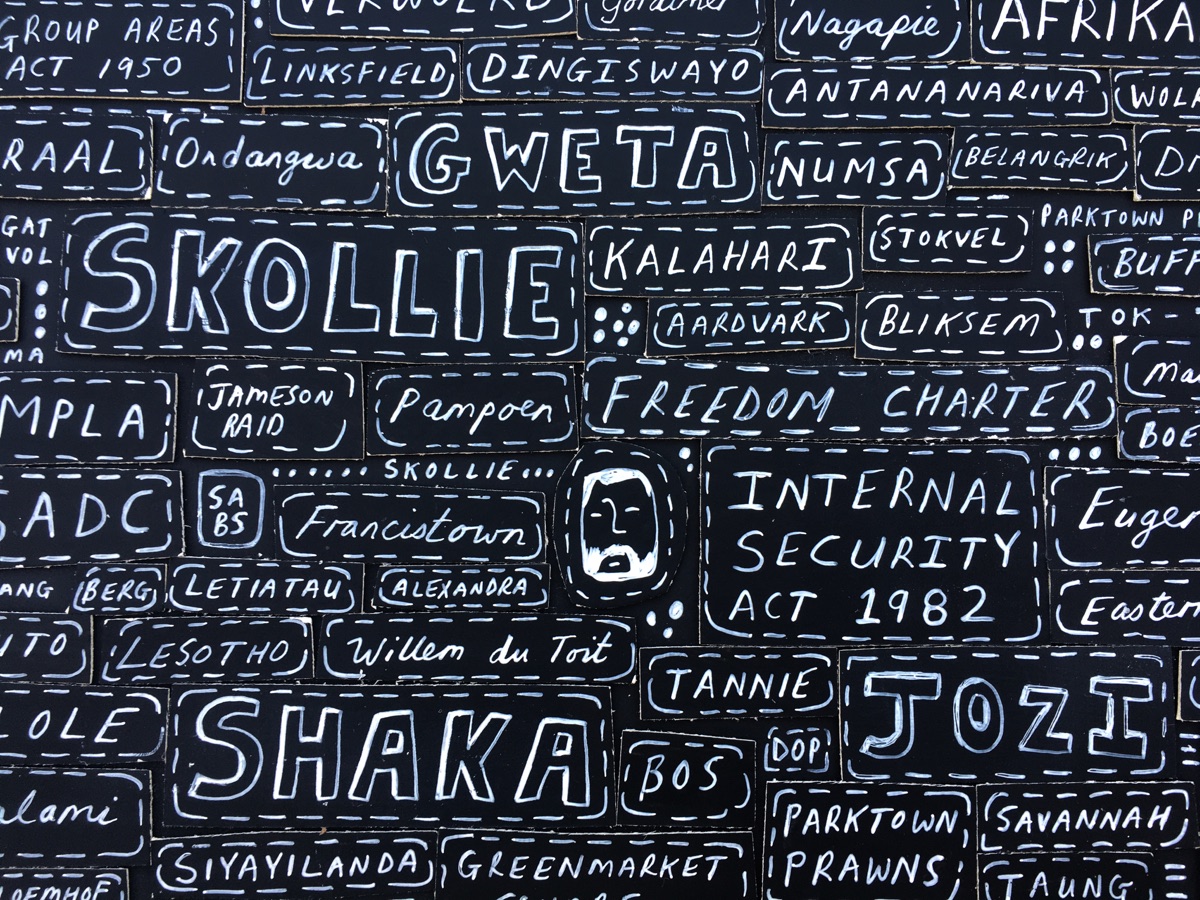 VERWOERD
Gordimer
Nagapie
AFRIKA
GROUP AREAS
ACT 1950
LINKSFIELD
DINGISWAYO
ANTANANARIVA
WOL
RAAL
Ondangwa
GWETA
NUMSA
BELANGRIK
GAT
VOL
SKOLLIE
KALAHARI
STOKVEL
PARKTOWN P
BUFF
AARDVARK
BLIKSEM
TOK-
MA
MPLA
JAMESON
RAID
Pampoen
FREEDOM CHARTER
BOE
SKOLLIE
SADC
SA
BS
Francistown
INTERNAL
SECURITY
ACT 1982
Eugen
ANG
BERG
LETIATAU
ALEXANDRA
Eastern
UTO
LESOTHO
Willem du Toit
TANNIE
JOZI
LOLE
SHAKA
BOS
DOP
alami
PARKTOWN
PRAWNS
SAVANNAH
SIYAYILANDA
GREENMARKET
SQUARE
TAUNG
LOEMHOF